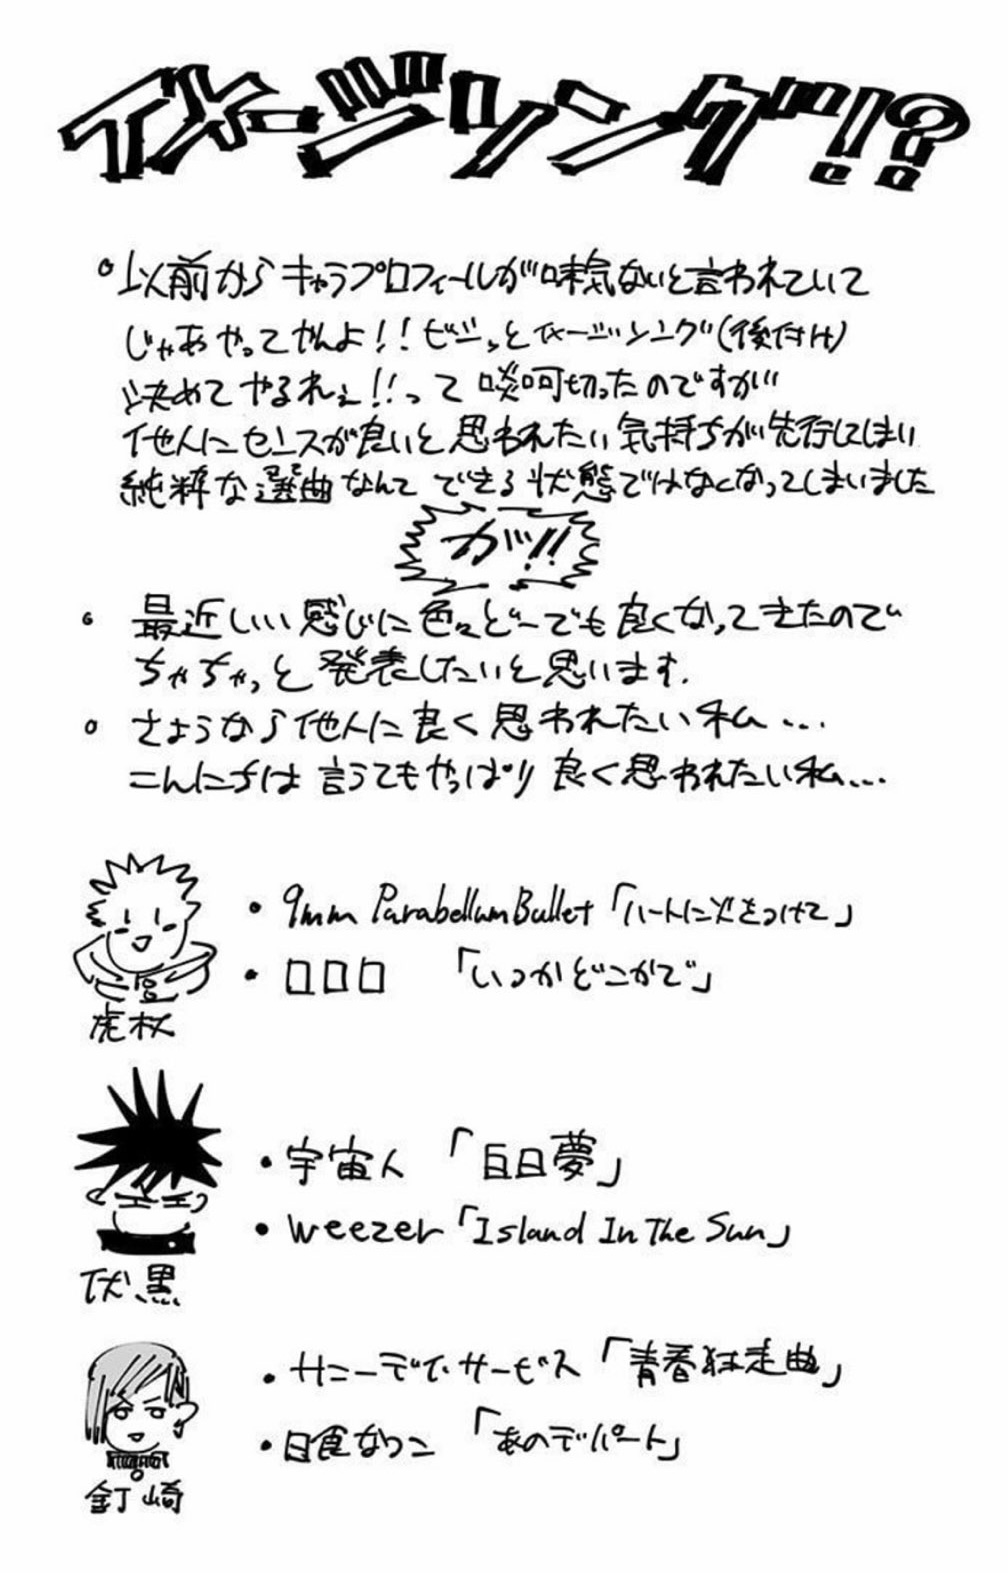 イメージソング!?
以前からキャラプロフィールが味気ないと言われていて
じゃあやってやんよ!!ビシッとイメージソング(後付け)
決めてやるれぇ!!って啖呵切ったのですが
他人にセンスが良いと思われたい気持ちが先行してしまい
純粋な選曲なんてできる状態ではなくなってしまいました
が!!
最近しいい感じに色々どーでも良くなってきたので
ちゃちゃっと発表したいと思います.
さようなら他人に良く思われたい私...
こんにちは言うてもやっぱり良く思われたい私...
・9mm Parabellum Bullet「ハートに火をつけて」
・口口口 「いつかどこかで」
虎杖
・宇宙人 「白日夢」
・weezer「Island In The Sun」
伏黒
・サニーデイ・サービス「青春狂走曲」
・日食なつこ 「あのデパート」
釘崎